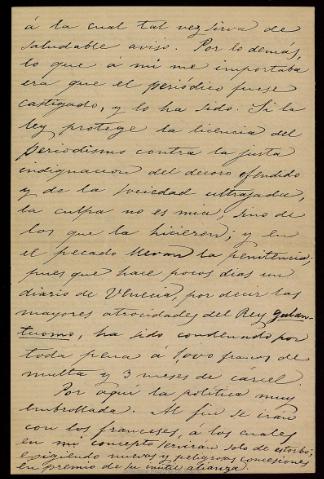 á la cual tal vez sirva de
saludable aviso. Por lo demás,
lo que á mí me importaba
era que el periódico fuese
castigado, y lo ha sido. Si la
ley protege la licencia del
periodismo contra la justa
indignacion del decoro ofendido
y de la sociedad ultrajada,
la culpa no es mia, sino de
los que la hicieron; y en
el pecado llevan la penitencia,
pues que hace pocos dias un
diario de Venecia, por decir las
mayores atrocidades del Rey galan-
tuomo, ha sido condenado por
toda pena a 1,000 francos de
multa y 3 meses de cárcel.
Por aquí la política muy
embrollada. Al fin se irán
con los franceses, á los cuales
en mi concepto servirán solo de estorbo,
exigiendo nuevas y peligrosas concesiones
en premio de su inútil alianza.